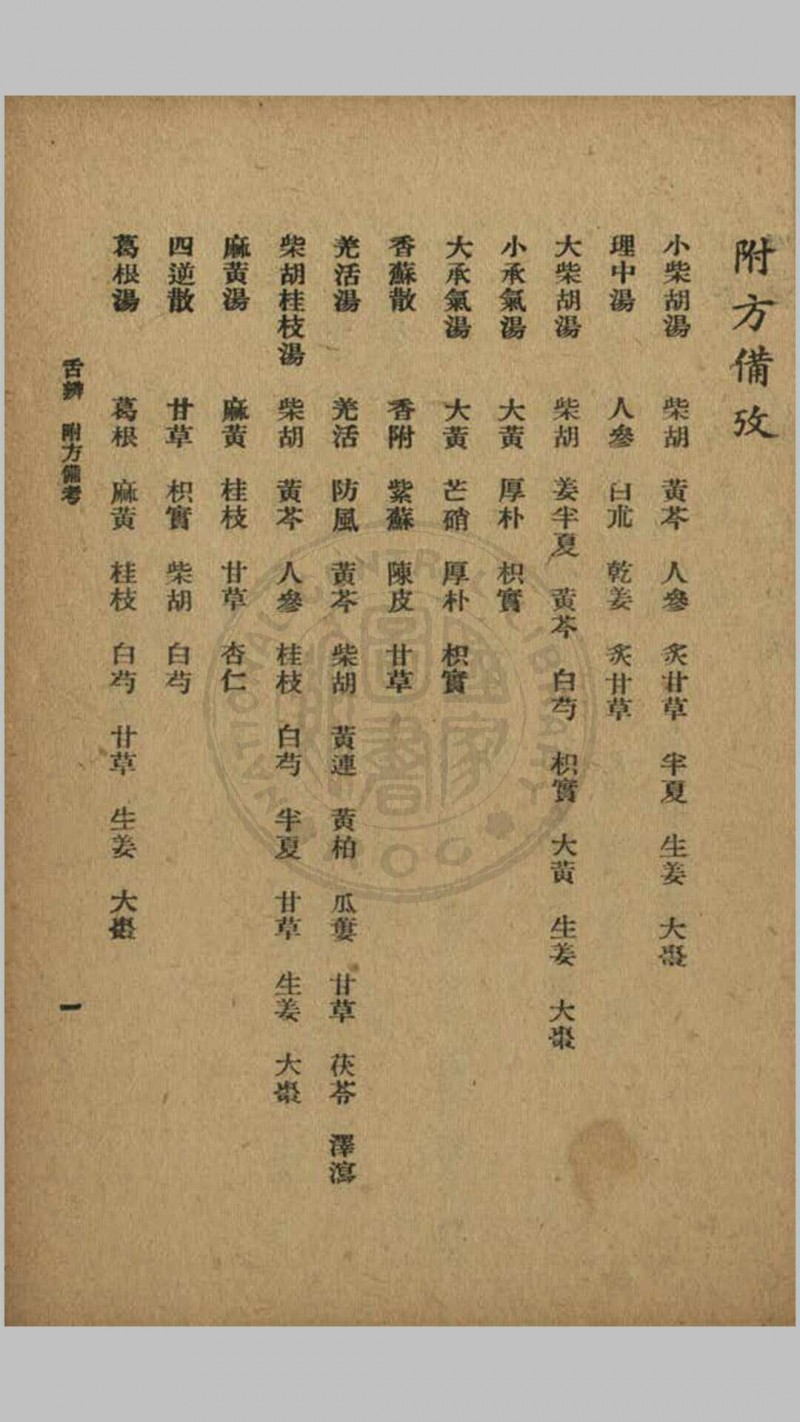 附方備攷
小柴胡湯 柴胡 黃芩 人參 炙甘草 半夏 生姜 大棗
理中湯 人參 白朮 乾姜 炙甘草
大柴胡湯 柴胡 姜半夏 黃芩 白芍 枳實 大黃 生姜 大棗
小承氣湯 大黃 厚朴 枳實
大承氣湯 大黃 芒硝 厚朴 枳實
香蘇散 香附 紫蘇 陳皮 甘草
羌活湯 羌活 防風 黃芩 柴胡 黃連 黃柏 瓜蔞 甘草 茯苓 澤瀉
柴胡桂枝湯 柴胡 黃芩 人參 桂枝 白芍 半夏 甘草 生姜 大棗
麻黃湯 麻黃 桂枝 甘草 杏仁
四逆散 甘草 枳實 柴胡 白芍
葛根湯 葛根 麻黃 桂枝 白芍 甘草 生姜 大棗
舌辨 附方備考 一